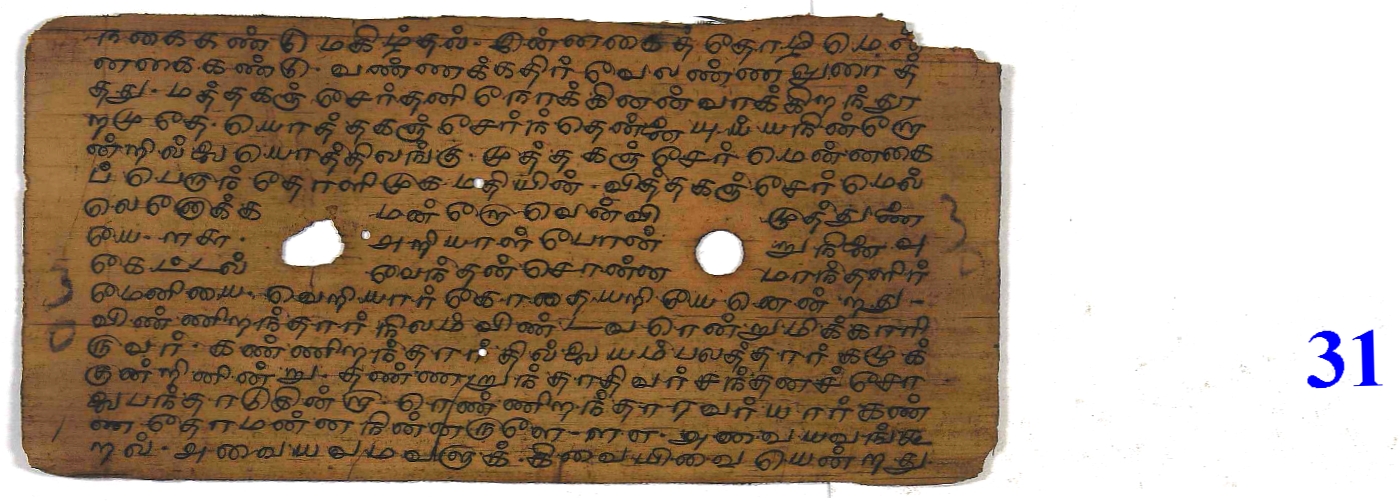 நகைகண்டு மெகிழ்தல். இன்னகைத் தோழி மெல்
னகைகண்டு. வண்ணக்கதிர் வேலண்ணலுணர்த்
தது. மத்தகஞ் சேர்தனி நோக்கினன் வாக்கிறந்தூ
றமுதே. யொத்தகஞ் சேர்ந்தென்னை யுய்யநின்றோ
ன்றில்லை யொத்திலங்கு. முத்தகஞ் சேர் மென்னகை
ப் பெருந் தோளி முகமதியின். வித்தகஞ் சேர்மெல்
லெனோக்க மன்றோ வென்வி ழுத்துண
யே. ளசா. அறியாள் போன் று நினைவு
கேட்டல் வேந்தன் சொன்ன மாந்தளிர்
மேனியை. வெறியார் கோதையறியே னென்றது-
விண்ணிறந்தார் நிலம் விண்டவரென்று மிக்காரி
ருவர். கண்ணிறந்தார் தில்லை யம்பலத்தார் கழுக்
குன்றினின்று. தண்ணறுந் தாதிவர் சந்தனச் சோ
லைபந்தாடுகின்றா. ரெண்ணிறந்தாரவர் யார்கண்
ணதோ மன்ன நின்னருளே-ளஎ. அவயவங்கூ
றல். அவையவமவளுக் கிவையிவை யென்றது.
31